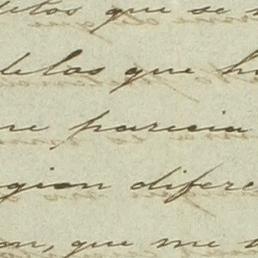 etos que se
delas que h
re parecia
gion difere
on, que me